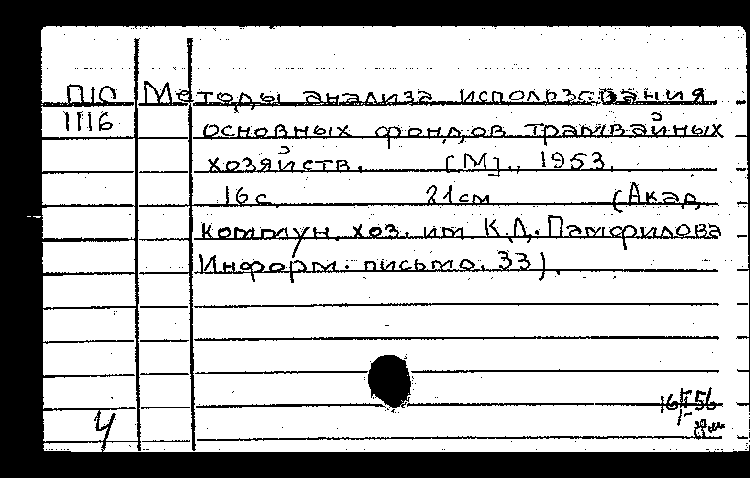 П10 Методы анализа использования
1116 основных фондов трамвайных
хозяйств. [М]., 1953.
16с. 21см (Акад.
коммун. хоз. им К.Д. Памфилова
Информ. письмо. 33).
16/II 56
Ч